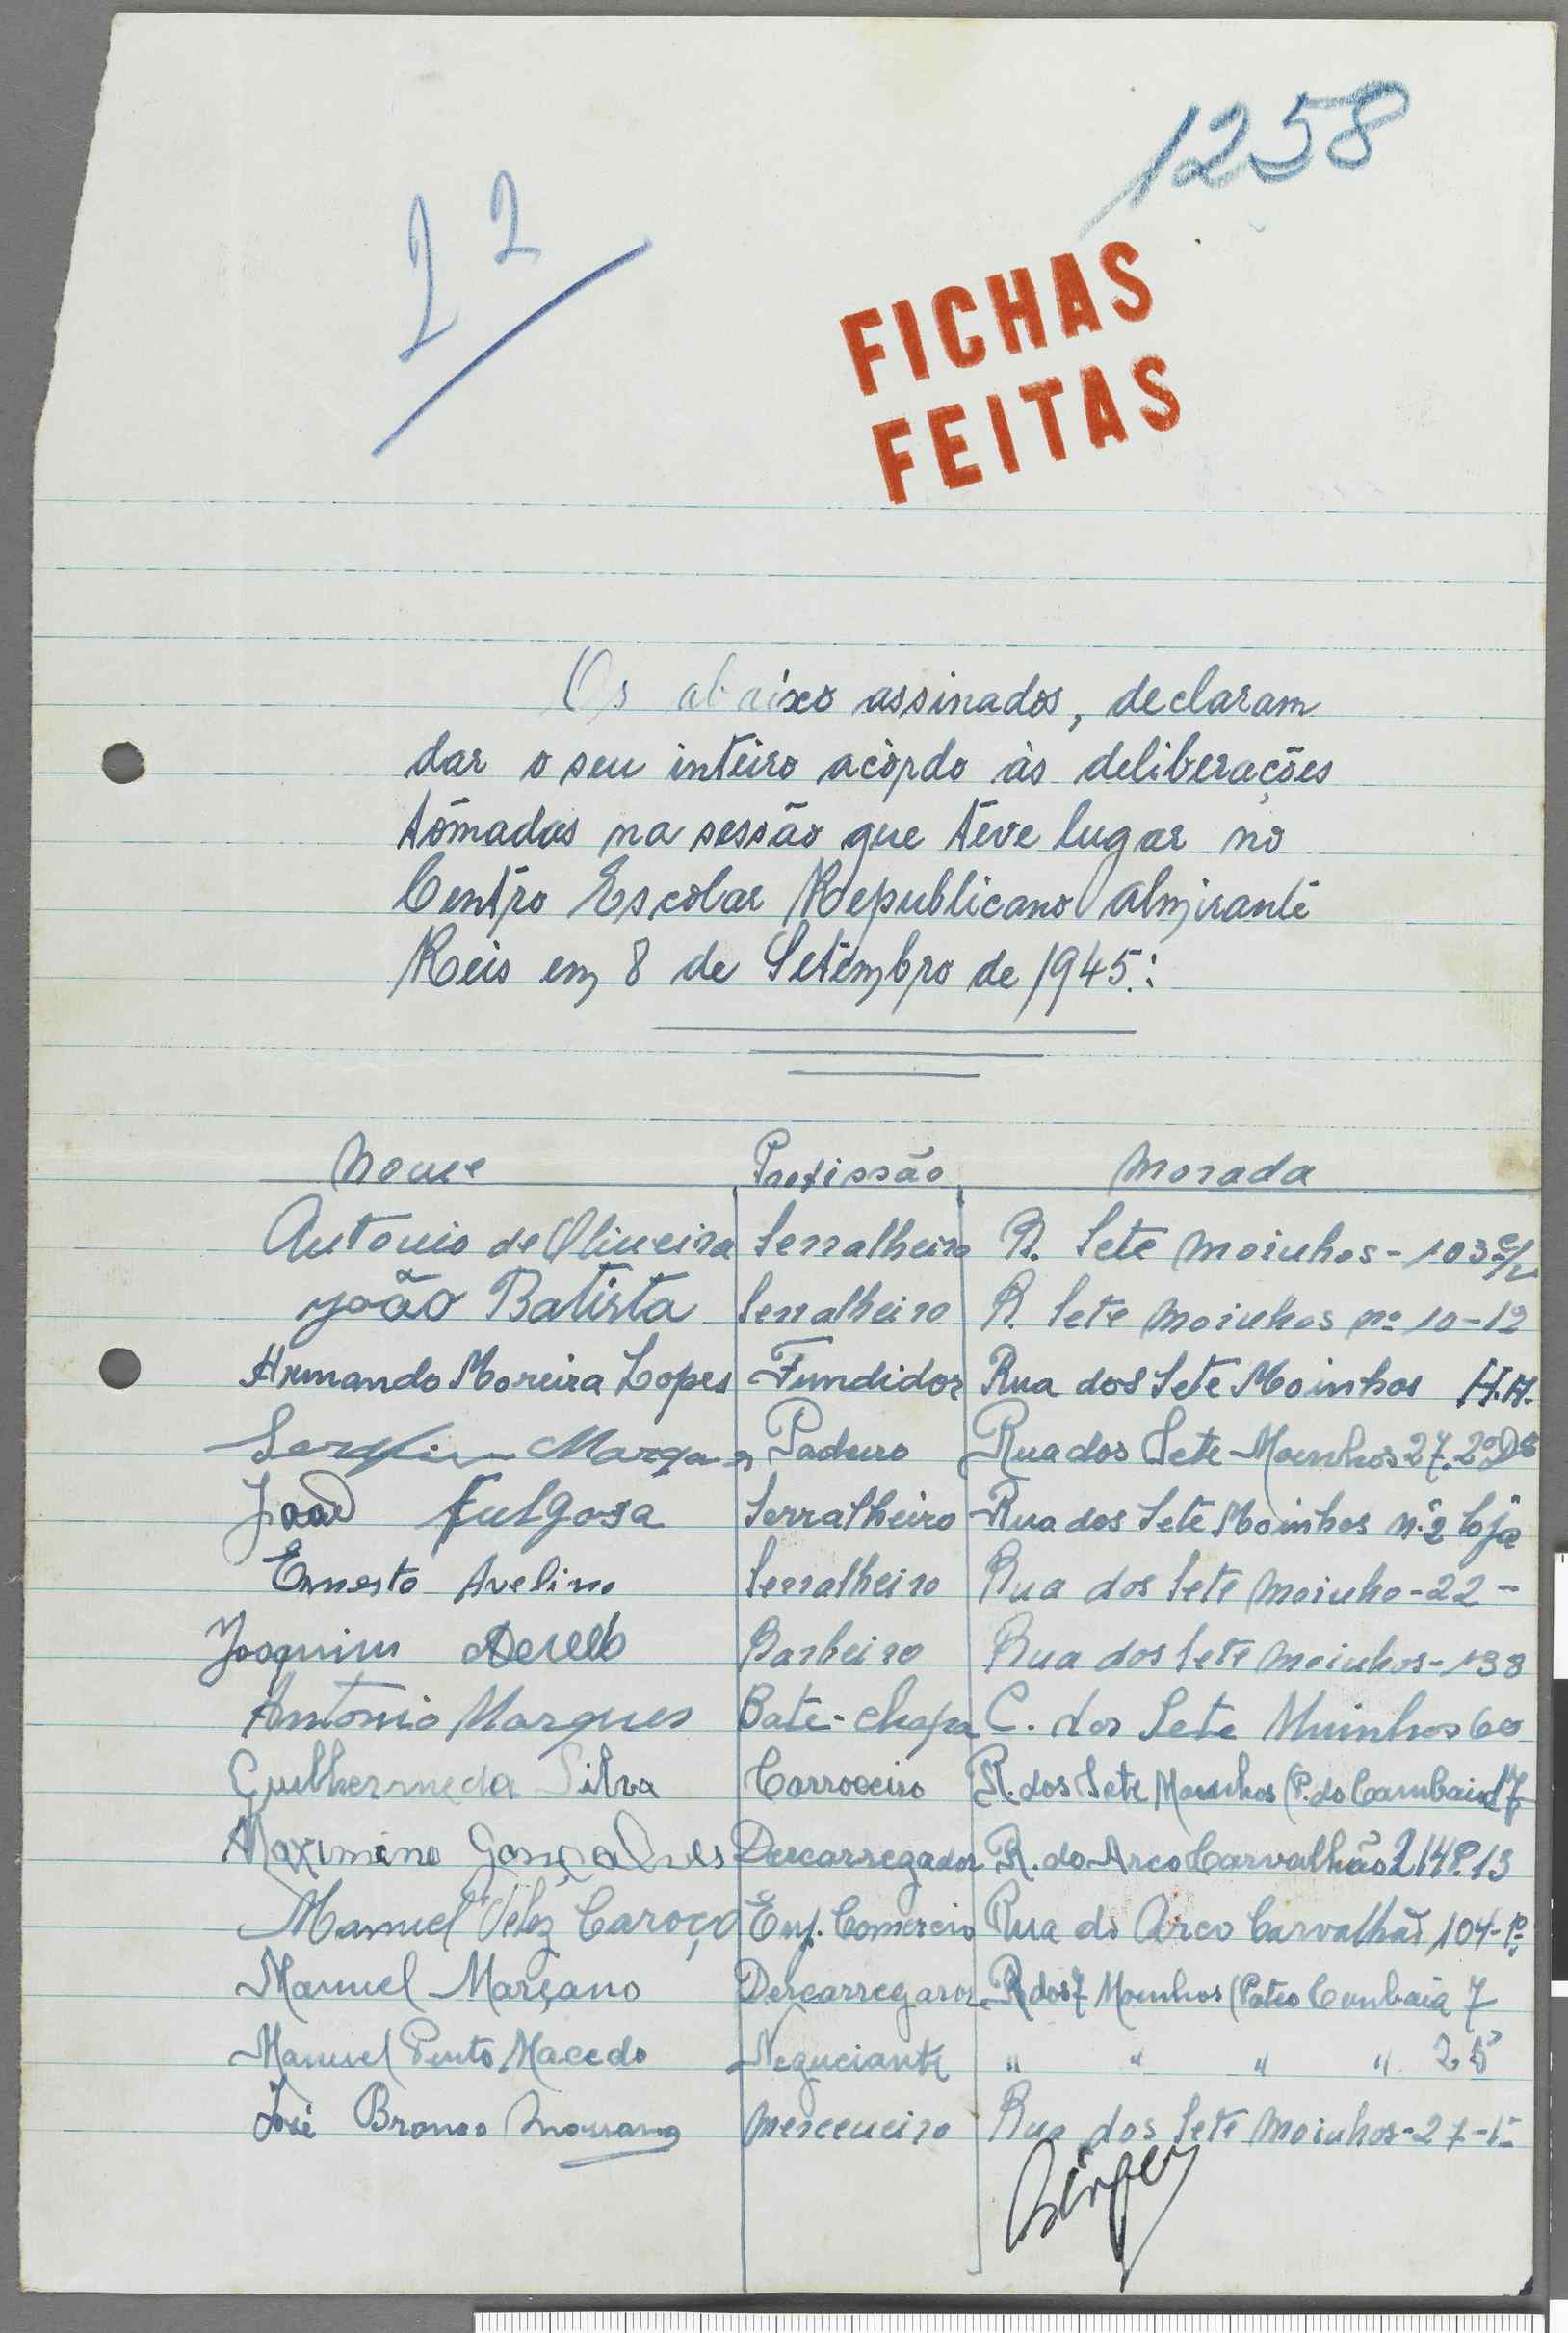 1258
22
FICHAS
FEITAS
Os abaixo assinados, declaram
dar o seu inteiro acôrdo às deliberações
tômadas na sessão que têve lugar no
Centro Escolar Republicano Almirante
Reis em 8 de Setembro de 1945:
Nome Profissão Morada
Antonio de Oliveira Serralheiro R. Sete Moinhos - 103 c/v
João Batista Serralheiro R. Sete Moinhos nº 10-12
Armando Moreira Lopes Fundidor Rua dos Sete Moinhos H.H.
Serafim Marques Padeiro Rua dos Sete Moinhos 27. 2º Dº
João Fulgosa Serralheiro Rua dos Sete Moinhos n.º 2 loja
Ernesto Avelino Serralheiro Rua dos Sete Moinho - 22 -
Joaquim Barbeiro Rua dos Sete Moinhos - 138
Antonio Marques Bate-chapa C. dos Sete Muinhos 60
Guilherme da Silva Carroceiro R. dos Sete Moinhos (P. do Cambaia 17
Maximino Gonçalves Descarregador R. do Arco Carvalhão 214 P. 13
Manuel Velez Caroço Emp. Comercio Rua do Arco Carvalhão 104-1º
Manuel Marçano Descarregador R dos 7 Moinhos (Pateo Cambaia 7
Manuel Pinto Macedo Neguciante " " " " 25
José Branco Marceneiro Rua dos Sete Moinhos - 27-1º